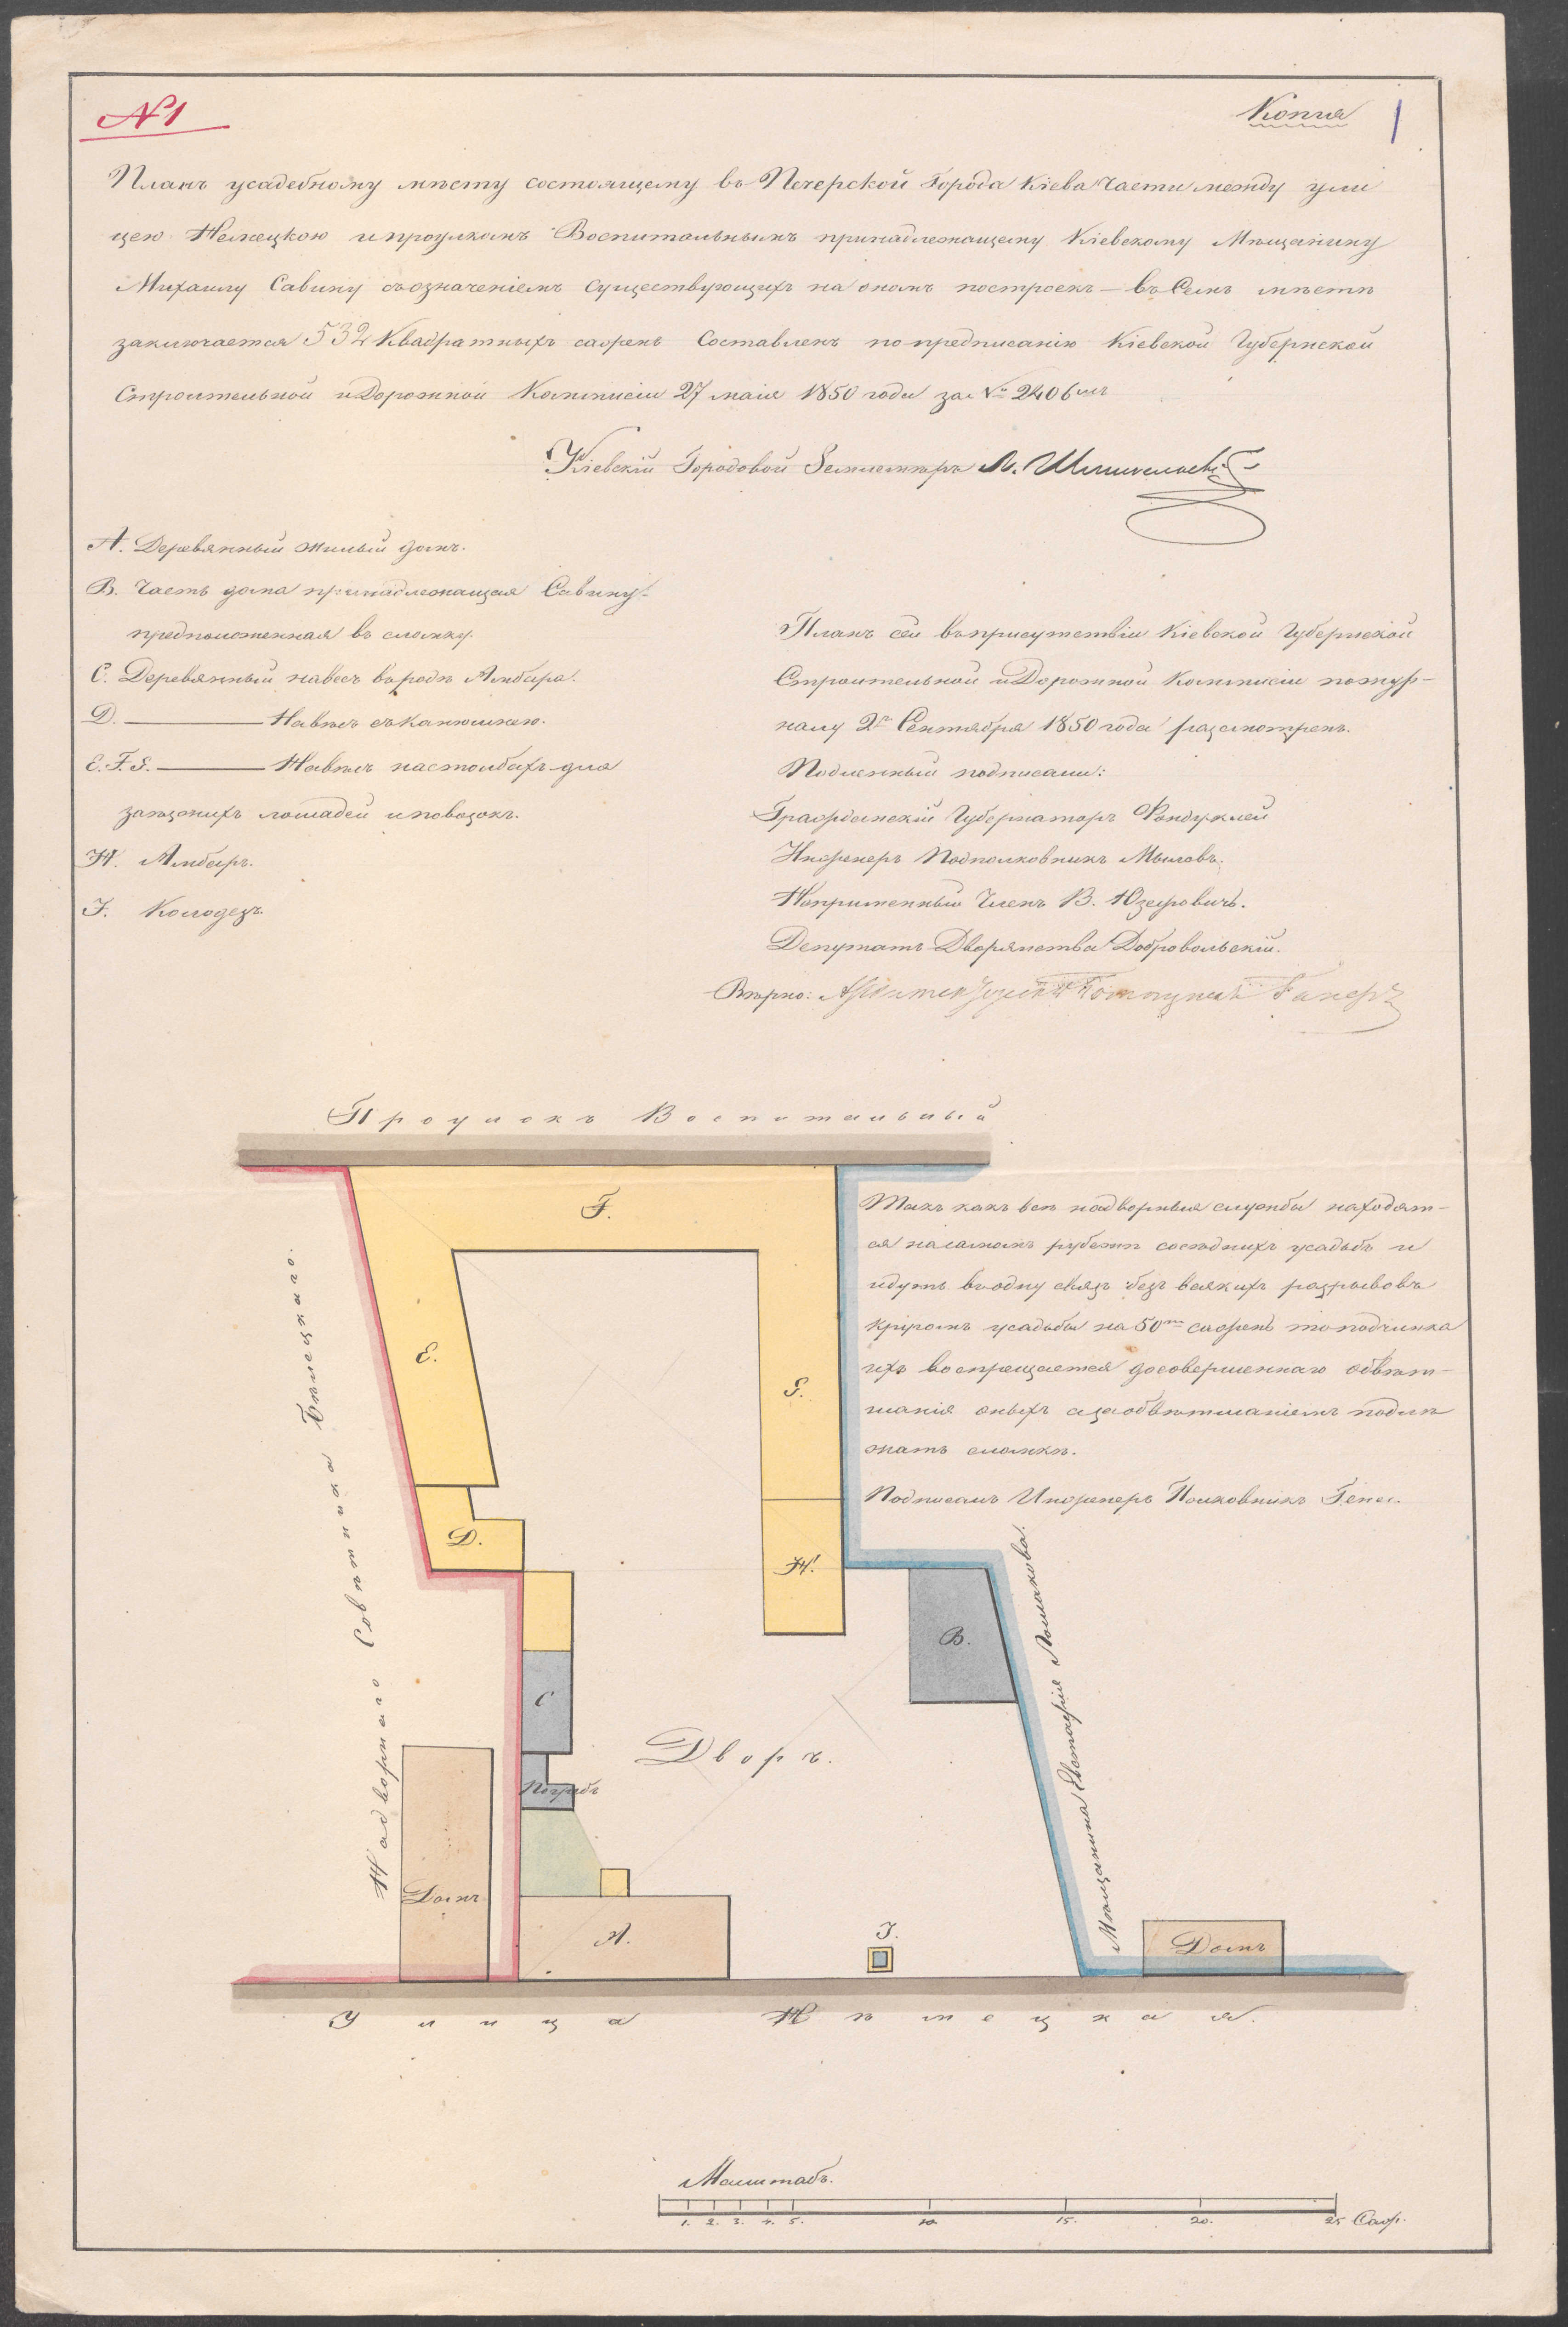 № 1
Копия
1
Планъ усадебному мѣсту состоящему въ Печерской Города Кіева Части между ули
цею Немецкою и проулкомъ Воспитальнымъ принадлежащему Кіевскому Мѣщанину
Михаилу Савину съ означеніемъ существующихъ на ономъ построекъ — въ Семъ мѣстѣ
заключается 532 Квадратныхъ сажень Составленъ по предписанію Кіевской Губернской
Строительной и Дорожной Коммисіи 27 маія 1850 года за № 2406мъ
Кіевскій Городовой Землемѣръ
А. Деревянный жилый домъ.
В. Часть дома принадлежащая Савину
предположенная въ сломку.
С. Деревянный навесъ въ родѣ Амбара.
D. ——— Навѣсъ съ канюшнею.
E. F. G. ——— Навѣсъ на столбахъ для
заѣзжихъ лошадей и повозокъ.
Н. Амбаръ.
J. Колодезь.
Планъ сей въ присутствіи Кіевской Губернской
Строительной и Дорожной Коммисіи по жур-
налу 2го Сентября 1850 года разсмотренъ.
Подленный подписали:
Гражданскій Губернаторъ Фондуклей
Инженеръ Подполковникъ Мыловъ.
Непременный Членъ В. Юзефовичь.
Депутатъ Дворянства Добровольскій.
Вѣрно:
Проулокъ Воспитальный
F.
E.
G.
D.
H.
B.
C
Погребъ
Дворъ.
Домъ
A.
J.
Домъ
Надворнаго Совѣтника Бѣлецкаго.
Мѣщанина Евстафія Ломакова.
Такъ какъ всѣ надворныя службы находят-
ся на самомъ рубежѣ соседнихъ усадьбъ и
идутъ въ одну связь безъ всякихъ разрывовъ
кругомъ усадьбы на 50ти сажень то подчинка
ихъ воспрещается до совершеннаго обвѣт-
шанія оныхъ а за обвѣтшаніемъ подле
жатъ сломкѣ.
Подписалъ Инженеръ Полковникъ
Улица Нѣмецкая.
Масштабъ.
1. 2. 3. 4. 5. 10. 15. 20. 25 Саж.